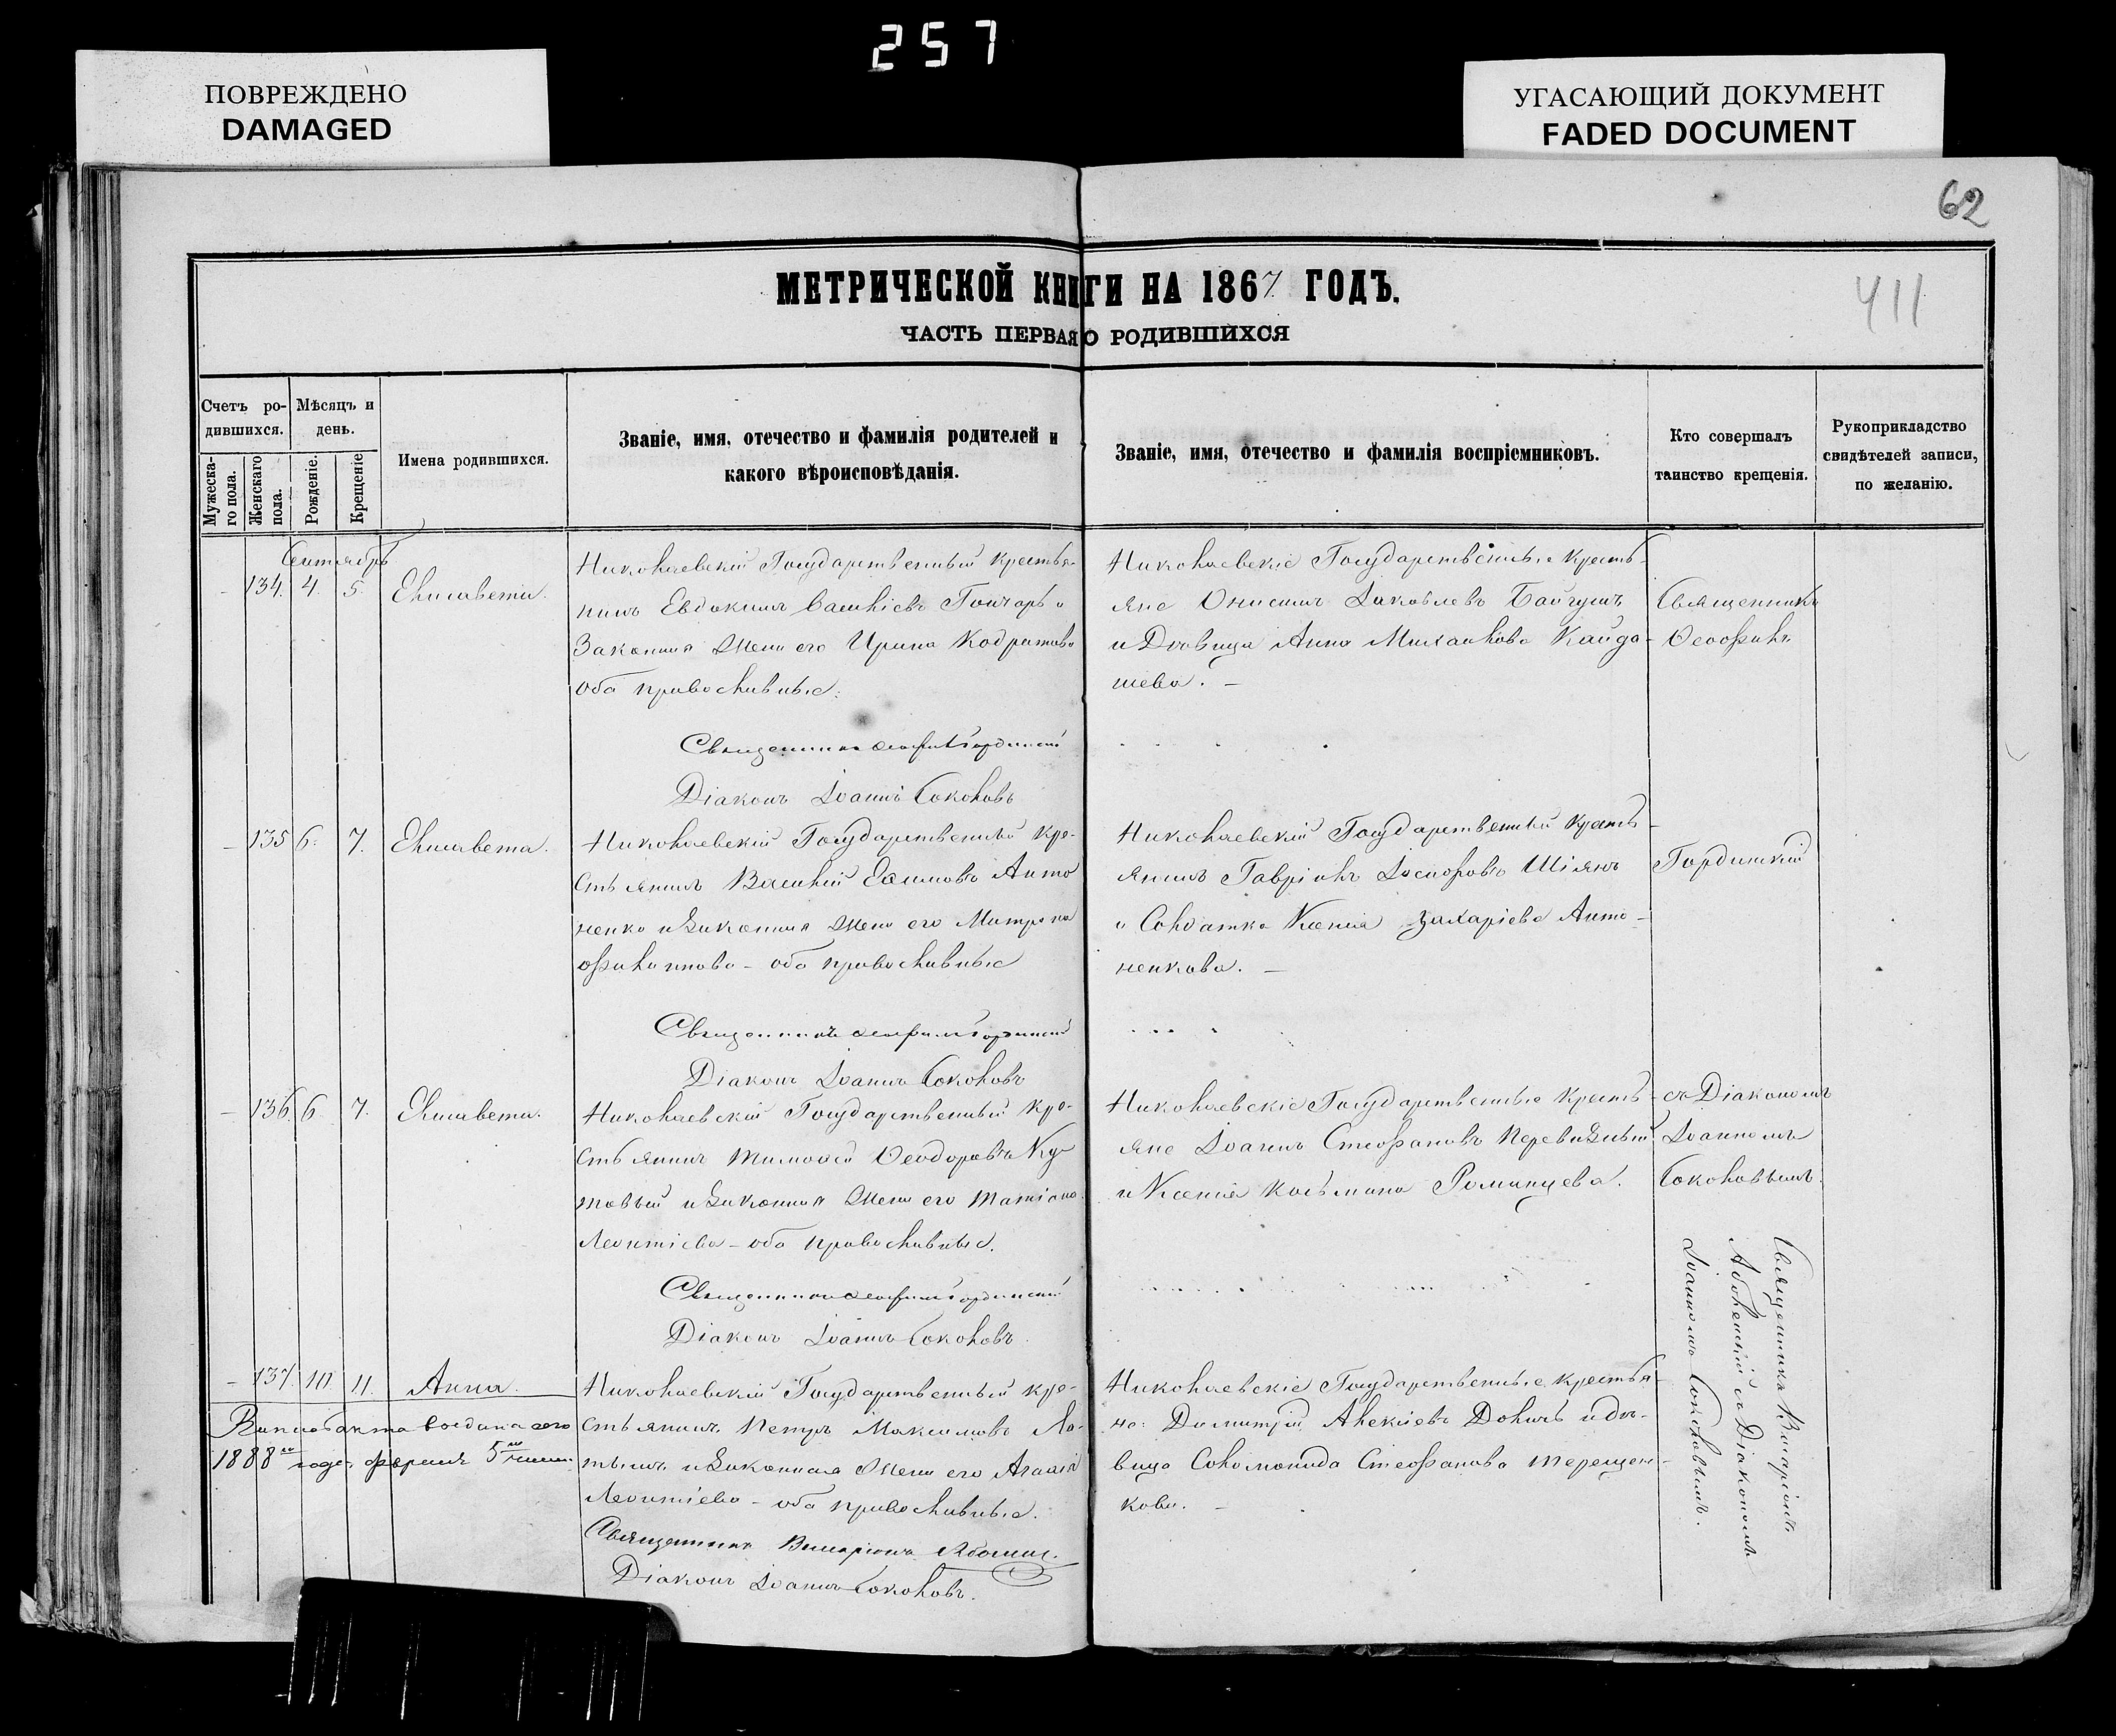 257
ПОВРЕЖДЕНО
DAMAGED
УГАСАЮЩИЙ ДОКУМЕНТ
FADED DOCUMENT
62
411
МЕТРИЧЕСКОЙ КНИГИ НА 1867 ГОДЪ.
ЧАСТЬ ПЕРВАЯ О РОДИВШИХСЯ
Счетъ ро-
дившихся.
Мужеска-
го пола.
Женскаго
пола.
Мѣсяцъ и
день.
Рожденіе.
Крещеніе
Имена родившихся.
Званіе, имя, отечество и фамилія родителей и
какого вѣроисповѣданія.
Званіе, имя, отечество и фамилія воспріемниковъ.
Кто совершалъ
таинство крещенія.
Рукоприкладство
свидѣтелей записи,
по желанію.
Сентябрь
134. 4. 5. Елисавета.
Николаевскій Государственный крестья-
нинъ Евдокимъ Гончаръ и
Законная жена его Ирина Кодратова
оба православные.
Священникъ Ѳеофилъ Гординскій
Діаконъ Іоаннъ Соколовъ
Николаевскіе Государственные кресть-
яне Онисимъ Іаковлевъ Байгушъ
и Дѣвица Анна Михаилова Кайда-
шева. –
Священникъ
Ѳеофилъ
– 135 6. 7. Елисавета.
Николаевскій Государственный кре-
стьянинъ Василій Антo
ненко и Законная жена его Матрона
Филипова – оба православные
Священникъ Ѳеофилъ Гординскій
Діаконъ Іоаннъ Соколовъ
Николаевскій Государственный кресть-
янинъ Гавріилъ Шіянъ
и Солдатка Ксенія Захаріева Анто-
ненкова. –
Гординскій
– 136. 6 7. Елисавета.
Николаевскій Государственный кре-
стьянинъ Тимоѳей Ѳеодоровъ Ку
товый и Законная жена его Татіана
Леонтіева – оба православные.
Священникъ Ѳеофилъ Гординскій
Діаконъ Іоаннъ Соколовъ
Николаевскіе Государственные кресть-
яне Іоаннъ Стефановъ
и Ксенія Косьмина Романцева.
съ Діакономъ
Іоанномъ
Соколовымъ.
– 137. 10 11. Анна.
1888го года февраля 5го
Николаевскій Государственный кре-
стьянинъ Петръ Максимовъ Ло-
и Законная жена его Агаѳія
Леонтіева – оба православные.
Священникъ
Діаконъ Іоаннъ Соколовъ.
Николаевскіе Государственные крестья-
не: Димитрій Алексіевъ и дѣ-
вица Соломонида Стефанова Терещен-
кова. –
Священникъ
съ Діакономъ
Іоанномъ Соколовымъ.